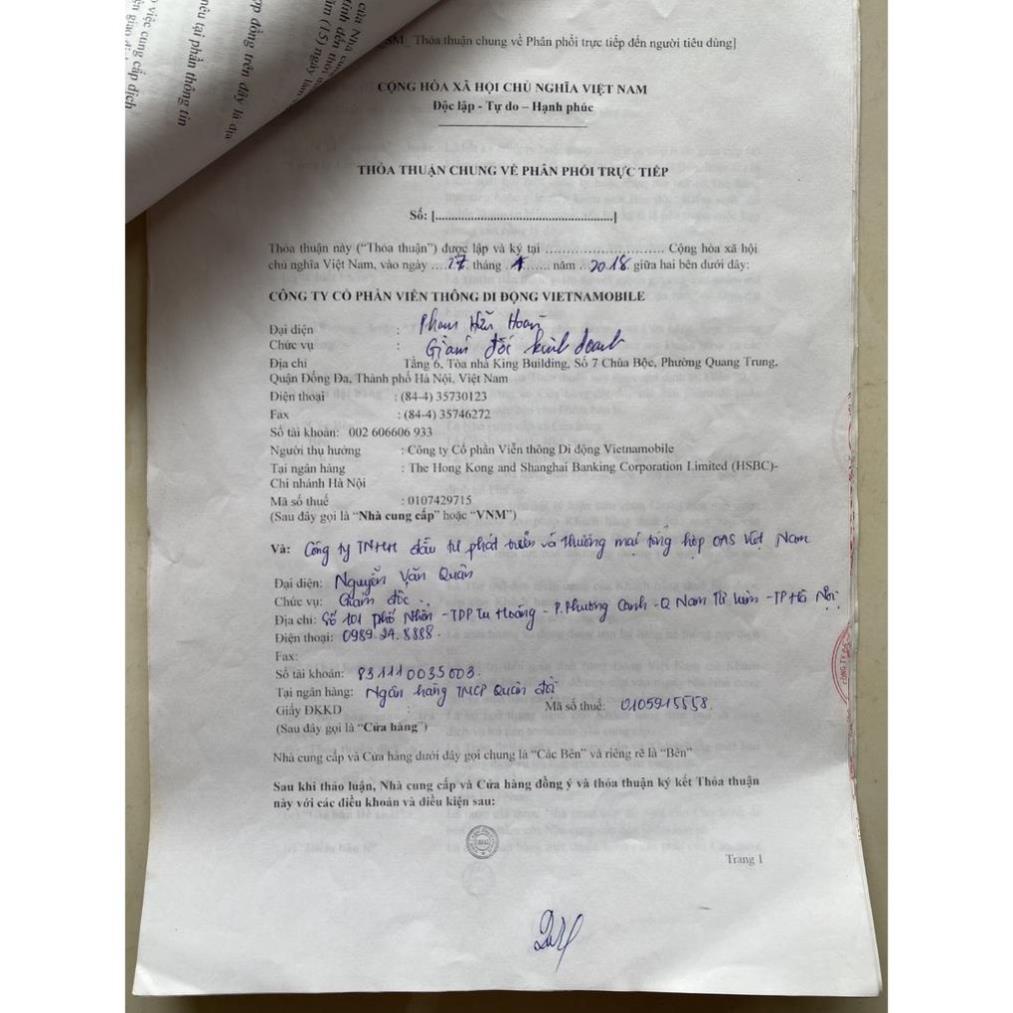 của Nhà cu
tính đến thời
ăm (15) ngày làm
ợp đồng trên đây là địa
nêu tại phần thông tin
việc cung cấp dịch
SM_ Thỏa thuận chung về Phân phối trực tiếp đến người tiêu dùng]
CỘNG HÒA XÃ HỘI CHỦ NGHĨA VIỆT NAM
Độc lập - Tự do – Hạnh phúc
THỎA THUẬN CHUNG VỀ PHÂN PHỐI TRỰC TIẾP
Số: [....................................................]
Thỏa thuận này (“Thỏa thuận”) được lập và ký tại ............................ Cộng hòa xã hội
chủ nghĩa Việt Nam, vào ngày ....17. tháng .1...... năm ..2018. giữa hai bên dưới đây:
CÔNG TY CỔ PHẦN VIỄN THÔNG DI ĐỘNG VIETNAMOBILE
Đại diện : Phạm Hoàn
Chức vụ : Giám đốc kinh doanh
Địa chỉ Tầng 6, Tòa nhà King Building, Số 7 Chùa Bộc, Phường Quang Trung,
Quận Đống Đa, Thành phố Hà Nội, Việt Nam
Điện thoại : (84-4) 35730123
Fax : (84-4) 35746272
Số tài khoản: 002 606606 933
Người thụ hưởng : Công ty Cổ phần Viễn thông Di động Vietnamobile
Tại ngân hàng : The Hong Kong and Shanghai Banking Corporation Limited (HSBC)-
Chi nhánh Hà Nội
Mã số thuế : 0107429715
(Sau đây gọi là “Nhà cung cấp” hoặc “VNM”)
Và: Công ty TNHH đầu tư phát triển và thương mại tổng hợp OAS Việt Nam
Đại diện: Nguyễn Văn Quân
Chức vụ: Giám đốc
Địa chỉ: Số 101 phố Nhổn - TDP Tu Hoàng - P. Phương Canh - Q Nam Từ Liêm - TP Hà Nội
Điện thoại: 0989.24.8888.
Fax:
Số tài khoản: 8311110035003.
Tại ngân hàng: Ngân hàng TMCP Quân đội
Giấy ĐKKD : Mã số thuế: 0105915558.
(Sau đây gọi là “Cửa hàng”)
Nhà cung cấp và Cửa hàng dưới đây gọi chung là “Các Bên” và riêng rẽ là “Bên”
Sau khi thảo luận, Nhà cung cấp và Cửa hàng đồng ý và thỏa thuận ký kết Thỏa thuận
này với các điều khoản và điều kiện sau:
Trang 1